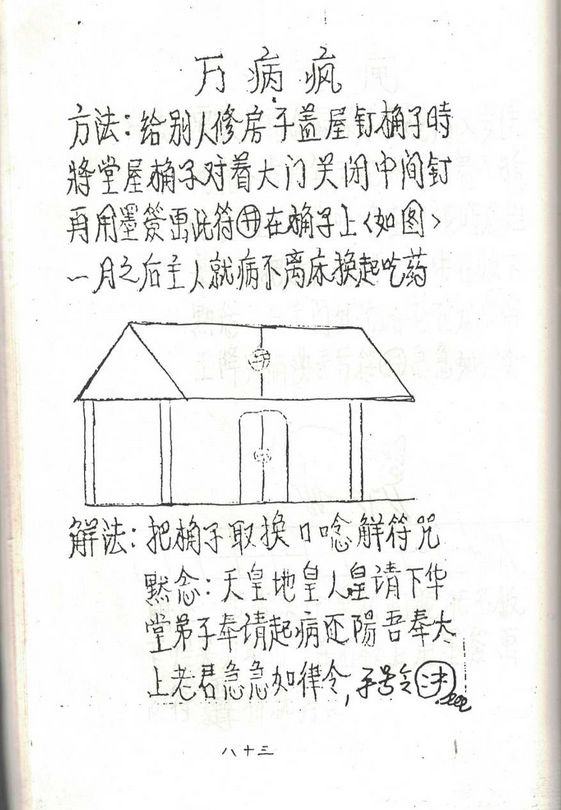 万病疯
方法：给别人修房子盖屋钉桷子時
將堂屋桷子对着大门关闭中间钉
再用墨签画此符㊉在桷子上〈如图〉
一月之后主人就病不离床换起吃药
解法：把桷子取换口唸解符咒
默念：天皇地皇人皇请下华
堂弟子奉请起病还陽吾奉太
上老君急急如律令，子号令法
八十三